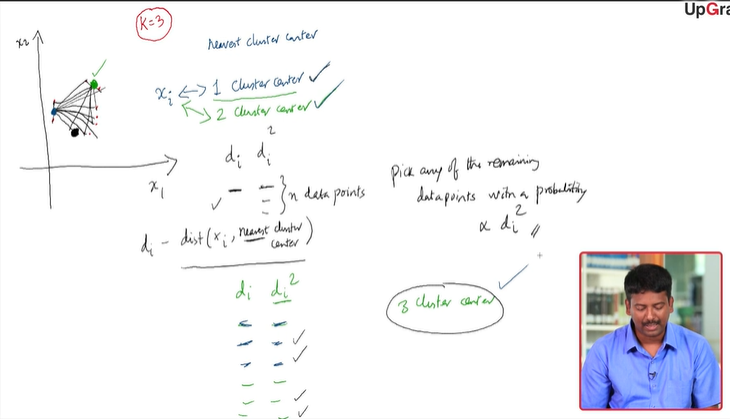 UpGra
K=3
x2
nearest cluster center
xi 1 cluster center
2 cluster center
di di²
n data points
x1
di - dist(xi, nearest cluster center)
di di²
pick any of the remaining
datapoints with a probability
∝ di²
3 cluster center